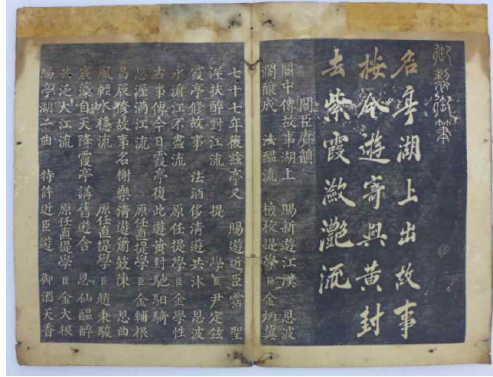 御製御筆
名亭湖上出故事
按今遊寄興黃封
去紫霞瀲灩流
閣臣賡韻
閣中傳故事湖上 賜新遊江漢 恩波
濶釀成 法醞流 檢校提學臣金炳冀
七十七年後玆亭又 賜遊近臣霑 聖
渥扶醉對江流 提學臣尹定鉉
霞亭修故事 法酒侈清遊共沐 恩波
永滄江不盡流 原任提學臣金學性
古事傳今日霞亭復此遊黃封馳馹騎
恩渥滿江流 原任直提學臣金輔根
昌辰修故事名榭樂清遊簫鼓陳 恩曲
風輕水穩流 原任直提學臣趙秉駿
宸藻自天降霞亭講舊遊含 恩仙醞醉
共泛大江流 原任直提學臣金大根
賜亭湖二曲 特許近臣遊 御酒天香